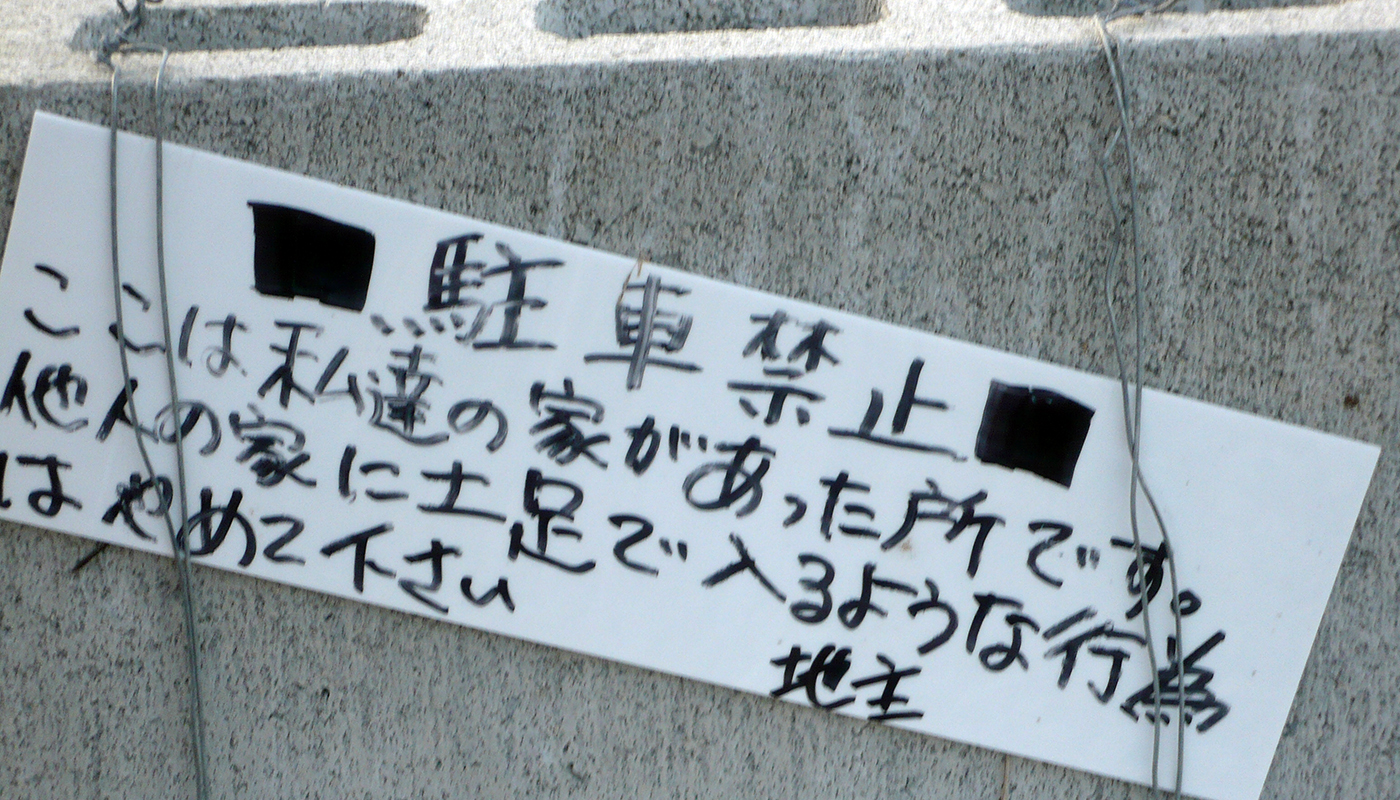 ■ 駐車禁止 ■
ここは私達の家があった所です。
他人の家に土足で入るような行為
はやめて下さい
地主